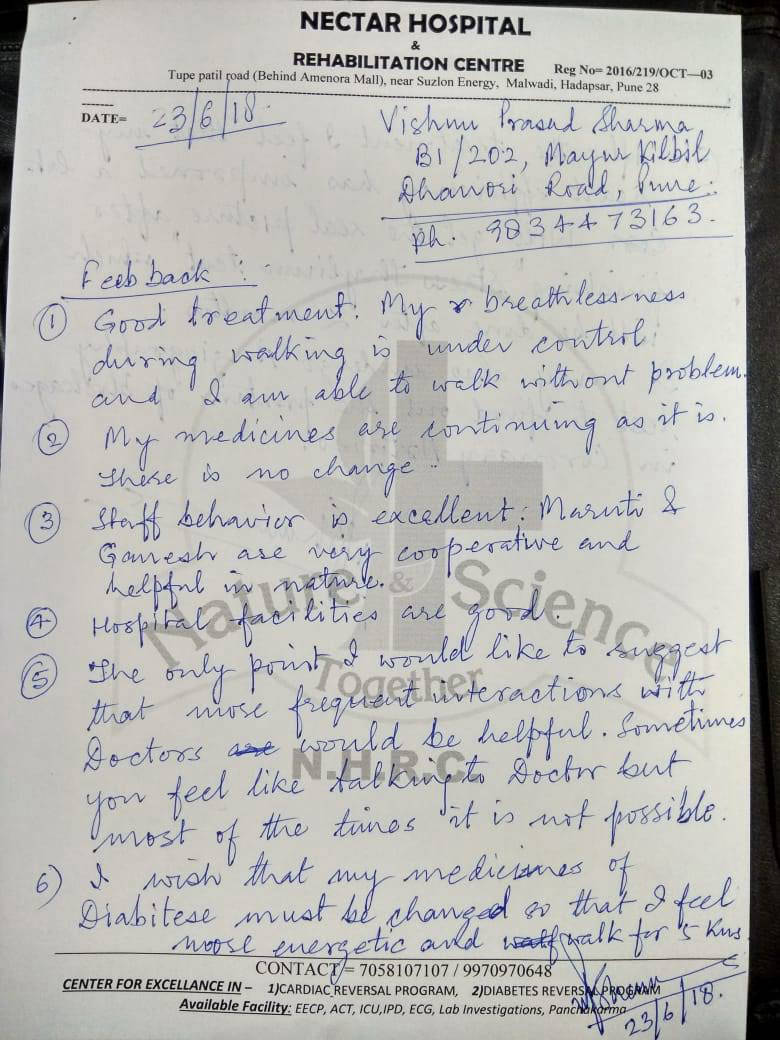 NECTAR HOSPITAL
&
REHABILITATION CENTRE
Reg No= 2016/219/OCT—03
Tupe patil road (Behind Amenora Mall), near Suzlon Energy, Malwadi, Hadapsar, Pune 28
DATE= 23/6/18.
Vishnu Prasad Sharma
B1/202, Mayur Kilbil
Dhanori Road, Pune.
Ph. 9834473163.
Feedback :
① Good treatment. My breathless-ness
during walking is under control
and I am able to walk without problem.
② My medicines are continuing as it is.
There is no change.
③ Staff behavior is excellent. Maruti &
Ganesh are very cooperative and
helpful in nature.
④ Hospital facilities are good.
⑤ The only point I would like to suggest
that more frequent interactions with
Doctors would be helpful. Sometimes
you feel like talking to Doctor but
most of the times it is not possible.
6) I wish that my medicines of
Diabitese must be changed so that I feel
more energetic and walk for 5 Kms
Nature & Science
Together
N.H.R.C.
CONTACT= 7058107107 / 9970970648
CENTER FOR EXCELLENCE IN – 1)CARDIAC REVERSAL PROGRAM, 2)DIABETES REVERSAL PROGRAM
Available Facility: EECP, ACT, ICU,IPD, ECG, Lab Investigations, Panchakarma
23/6/18.